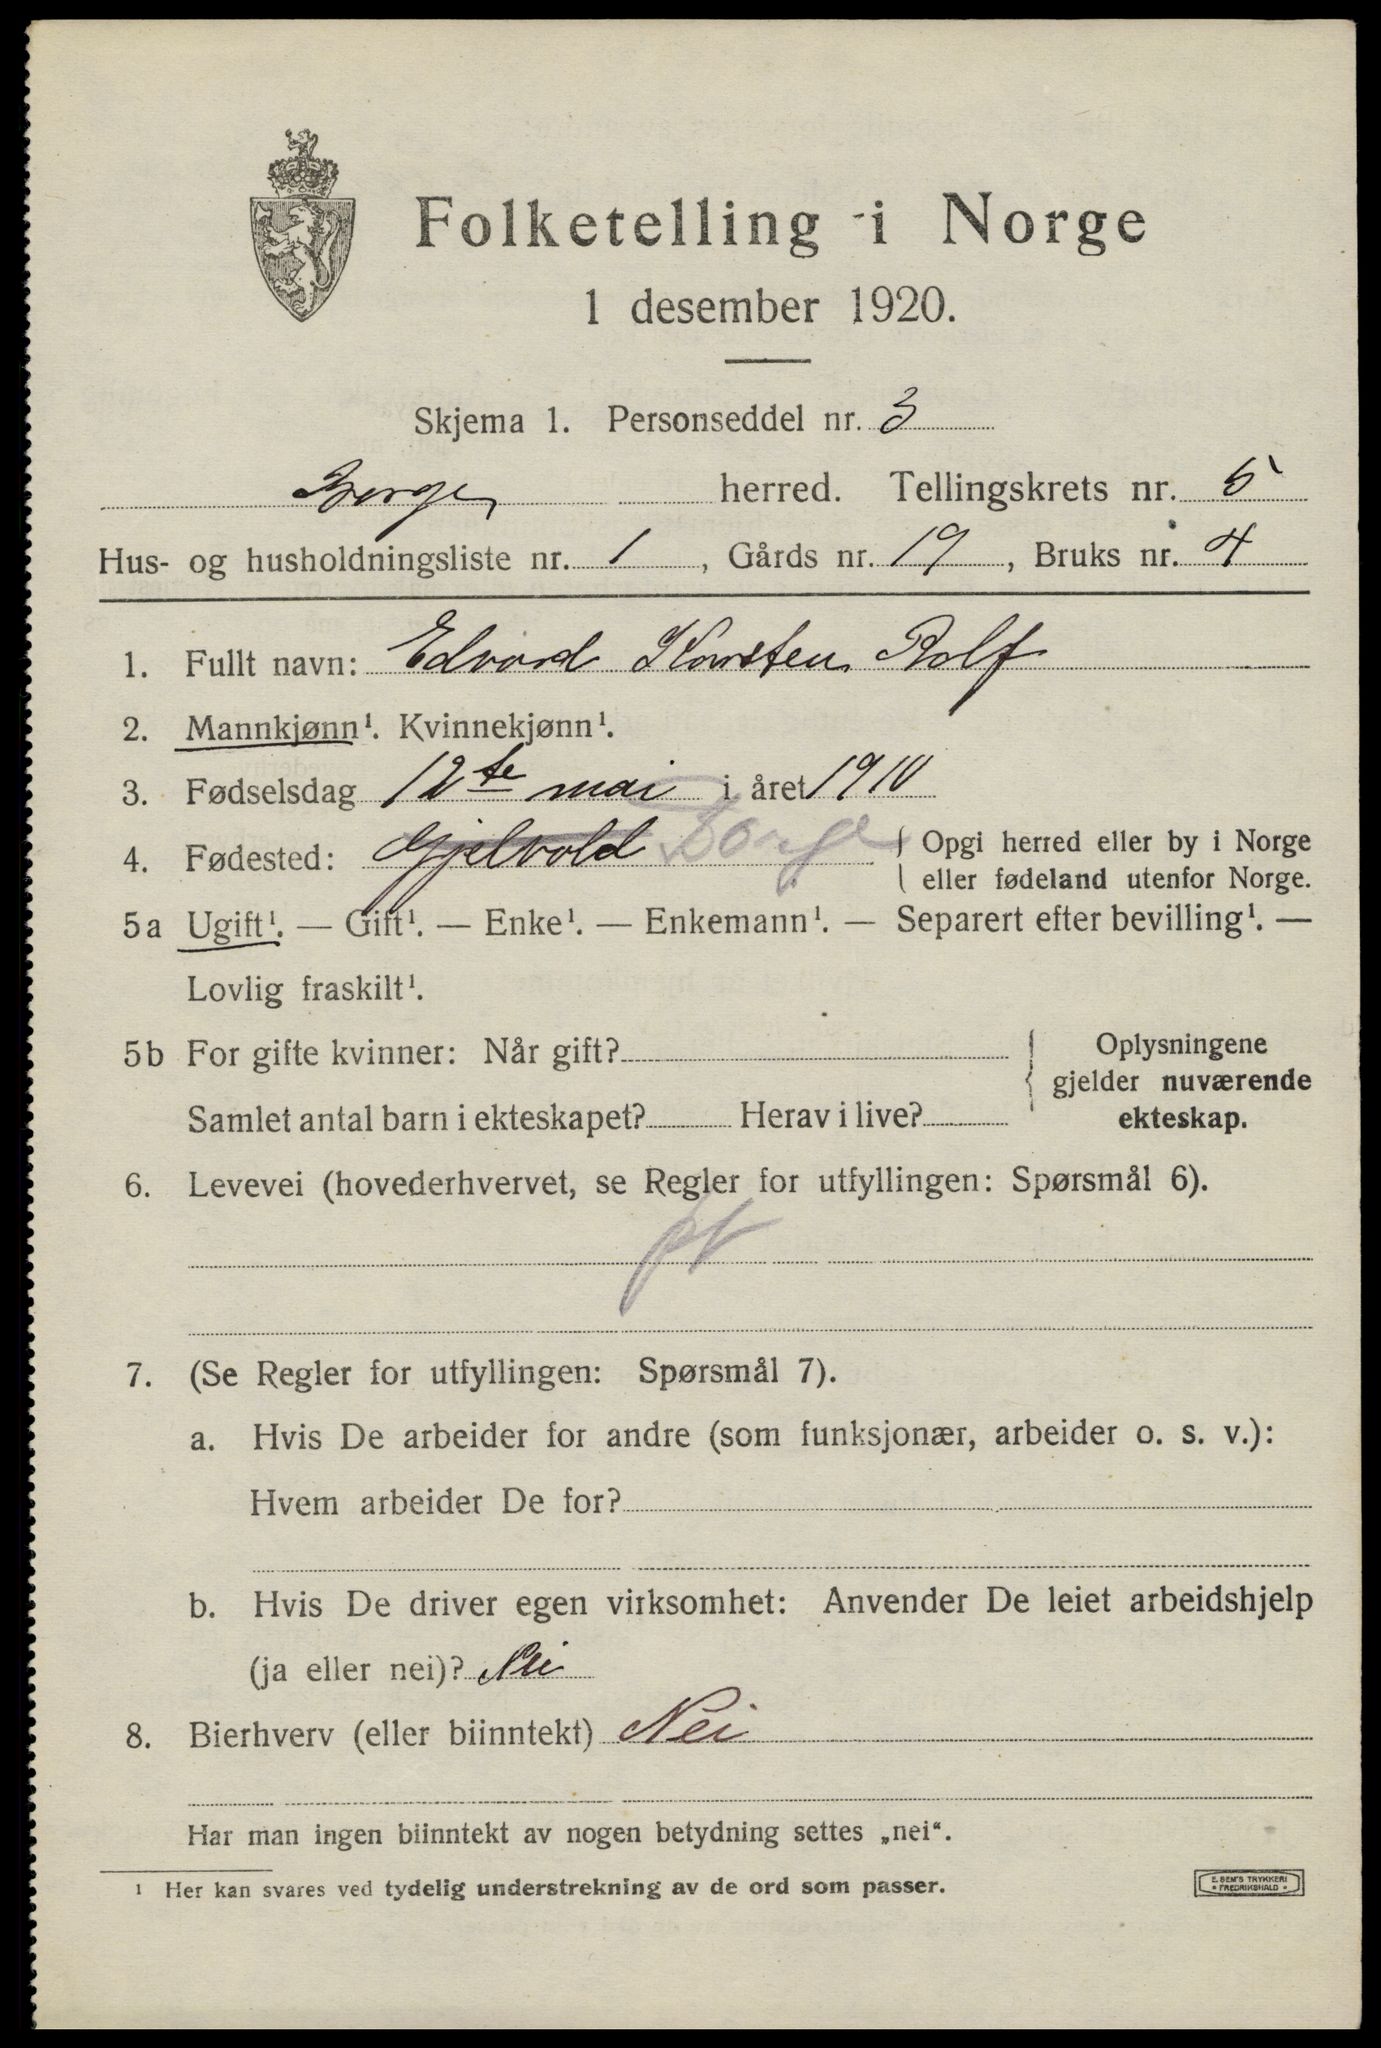 Folketelling i Norge
1 desember 1920.
Skjema 1. Personseddel nr. 3
Borge herred. Tellingskrets nr. 5
Hus- og husholdningsliste nr. 1, Gårds nr. 19, Bruks nr. 4
1. Fullt navn: Edvard Karsten Rolf
2. Mannkjønn¹. Kvinnekjønn¹.
3. Fødselsdag 12te mai i året 1910
4. Fødested: Gjelvold Borge { Opgi herred eller by i Norge
eller fødeland utenfor Norge.
5a Ugift¹. — Gift¹. — Enke¹. — Enkemann¹. — Separert efter bevilling¹. —
Lovlig fraskilt¹.
5b For gifte kvinner: Når gift?
Samlet antal barn i ekteskapet? Herav i live?
Oplysningene
gjelder nuværende
ekteskap.
6. Levevei (hovederhvervet, se Regler for utfyllingen: Spørsmål 6).
7. (Se Regler for utfyllingen: Spørsmål 7).
a. Hvis De arbeider for andre (som funksjonær, arbeider o. s. v.):
Hvem arbeider De for?
b. Hvis De driver egen virksomhet: Anvender De leiet arbeidshjelp
(ja eller nei)? Nei
8. Bierhverv (eller biinntekt) Nei
Har man ingen biinntekt av nogen betydning settes „nei“.
¹ Her kan svares ved tydelig understrekning av de ord som passer.
E. SEM'S TRYKKERI
• FREDRIKSHALD •